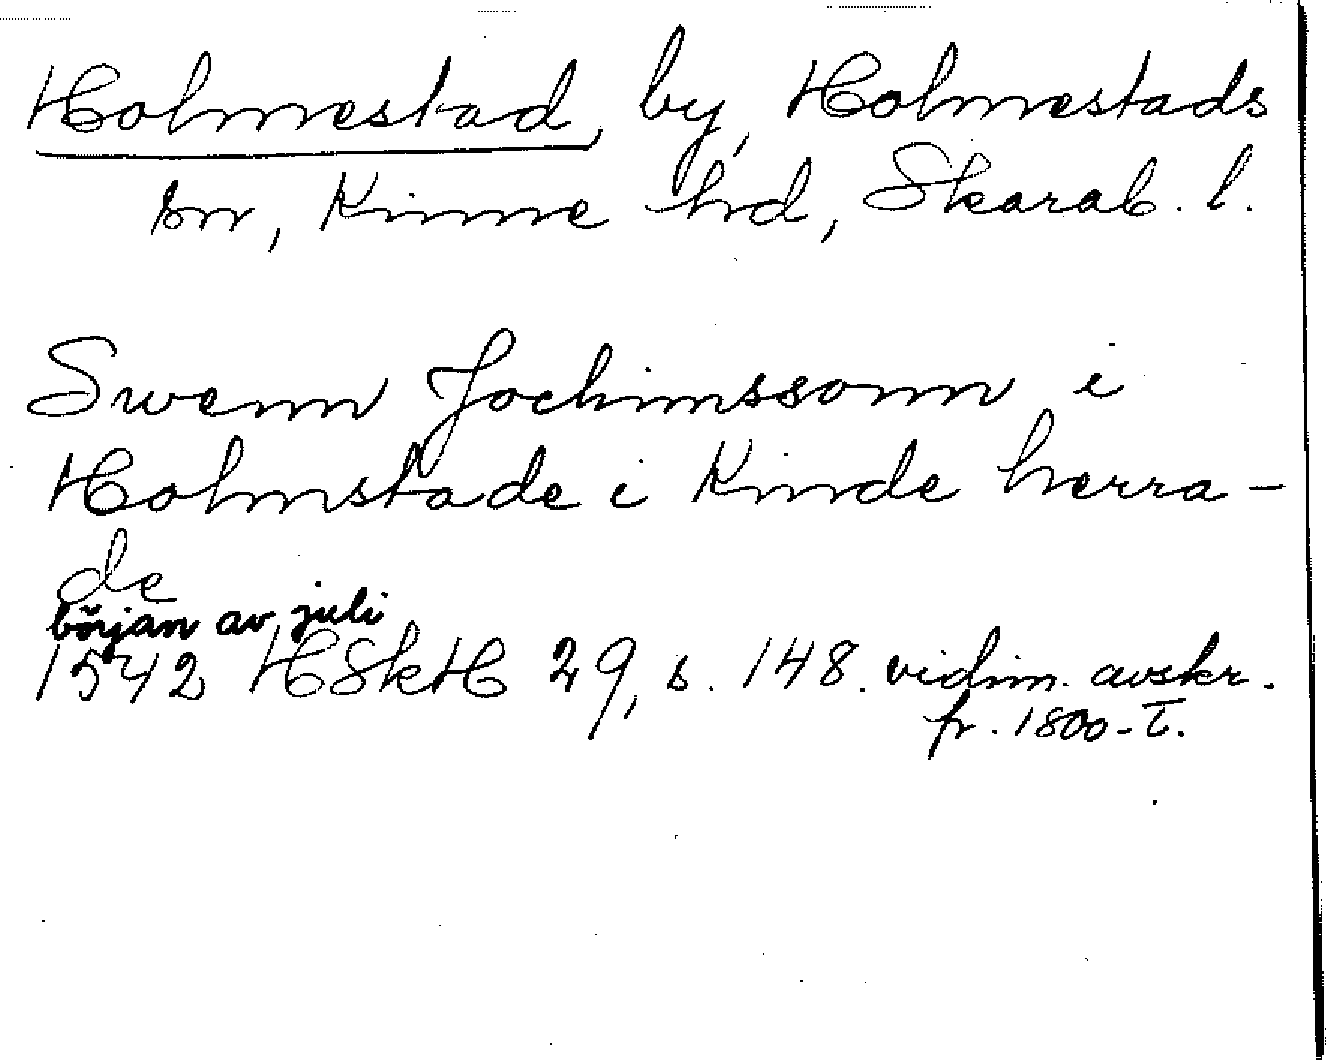 Holmestad, by, Holmestads
sn, Kinne hd, Skarab. l.
Swenn Jochimssonn i
Holmstade i Kinde herra-
de
början av juli
1542 HSkH 29, s. 148. vidim. avskr.
fr. 1800-t.